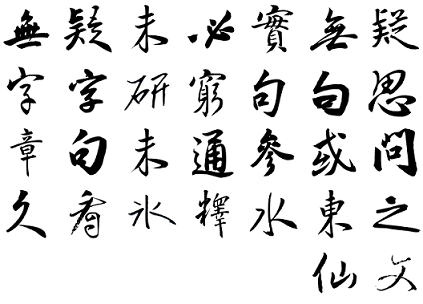 無疑未必實無疑
字字研窮句句思
章句未通參或問
久看氷釋水東之
仙文